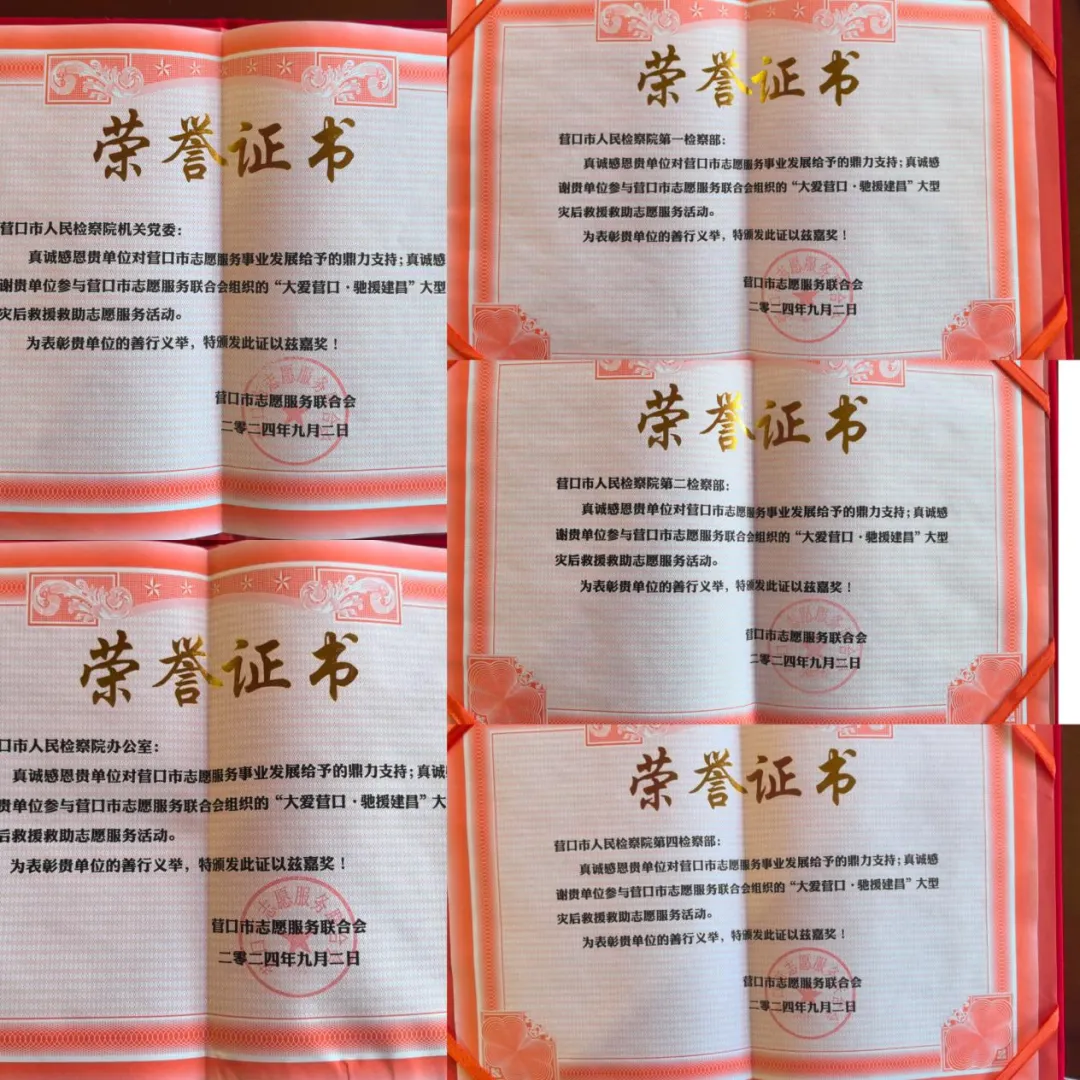 荣誉证书
营口市人民检察院机关党委：
真诚感恩贵单位对营口市志愿服务事业发展给予的鼎力支持；真诚感
谢贵单位参与营口市志愿服务联合会组织的“大爱营口·驰援建昌”大型
灾后救援救助志愿服务活动。
为表彰贵单位的善行义举，特颁发此证以兹嘉奖！
营口市志愿服务联合会
二零二四年九月二日
荣誉证书
口市人民检察院办公室：
真诚感恩贵单位对营口市志愿服务事业发展给予的鼎力支持；真诚
贵单位参与营口市志愿服务联合会组织的“大爱营口·驰援建昌”大
后救援救助志愿服务活动。
为表彰贵单位的善行义举，特颁发此证以兹嘉奖！
营口市志愿服务联合会
二零二四年九月二日
荣誉证书
营口市人民检察院第一检察部：
真诚感恩贵单位对营口市志愿服务事业发展给予的鼎力支持；真诚感
谢贵单位参与营口市志愿服务联合会组织的“大爱营口·驰援建昌”大型
灾后救援救助志愿服务活动。
为表彰贵单位的善行义举，特颁发此证以兹嘉奖！
营口市志愿服务联合会
二零二四年九月二日
荣誉证书
营口市人民检察院第二检察部：
真诚感恩贵单位对营口市志愿服务事业发展给予的鼎力支持；真诚感
谢贵单位参与营口市志愿服务联合会组织的“大爱营口·驰援建昌”大型
灾后救援救助志愿服务活动。
为表彰贵单位的善行义举，特颁发此证以兹嘉奖！
营口市志愿服务联合会
二零二四年九月二日
荣誉证书
营口市人民检察院第四检察部：
真诚感恩贵单位对营口市志愿服务事业发展给予的鼎力支持；真诚感
谢贵单位参与营口市志愿服务联合会组织的“大爱营口·驰援建昌”大型
灾后救援救助志愿服务活动。
为表彰贵单位的善行义举，特颁发此证以兹嘉奖！
营口市志愿服务联合会
二零二四年九月二日